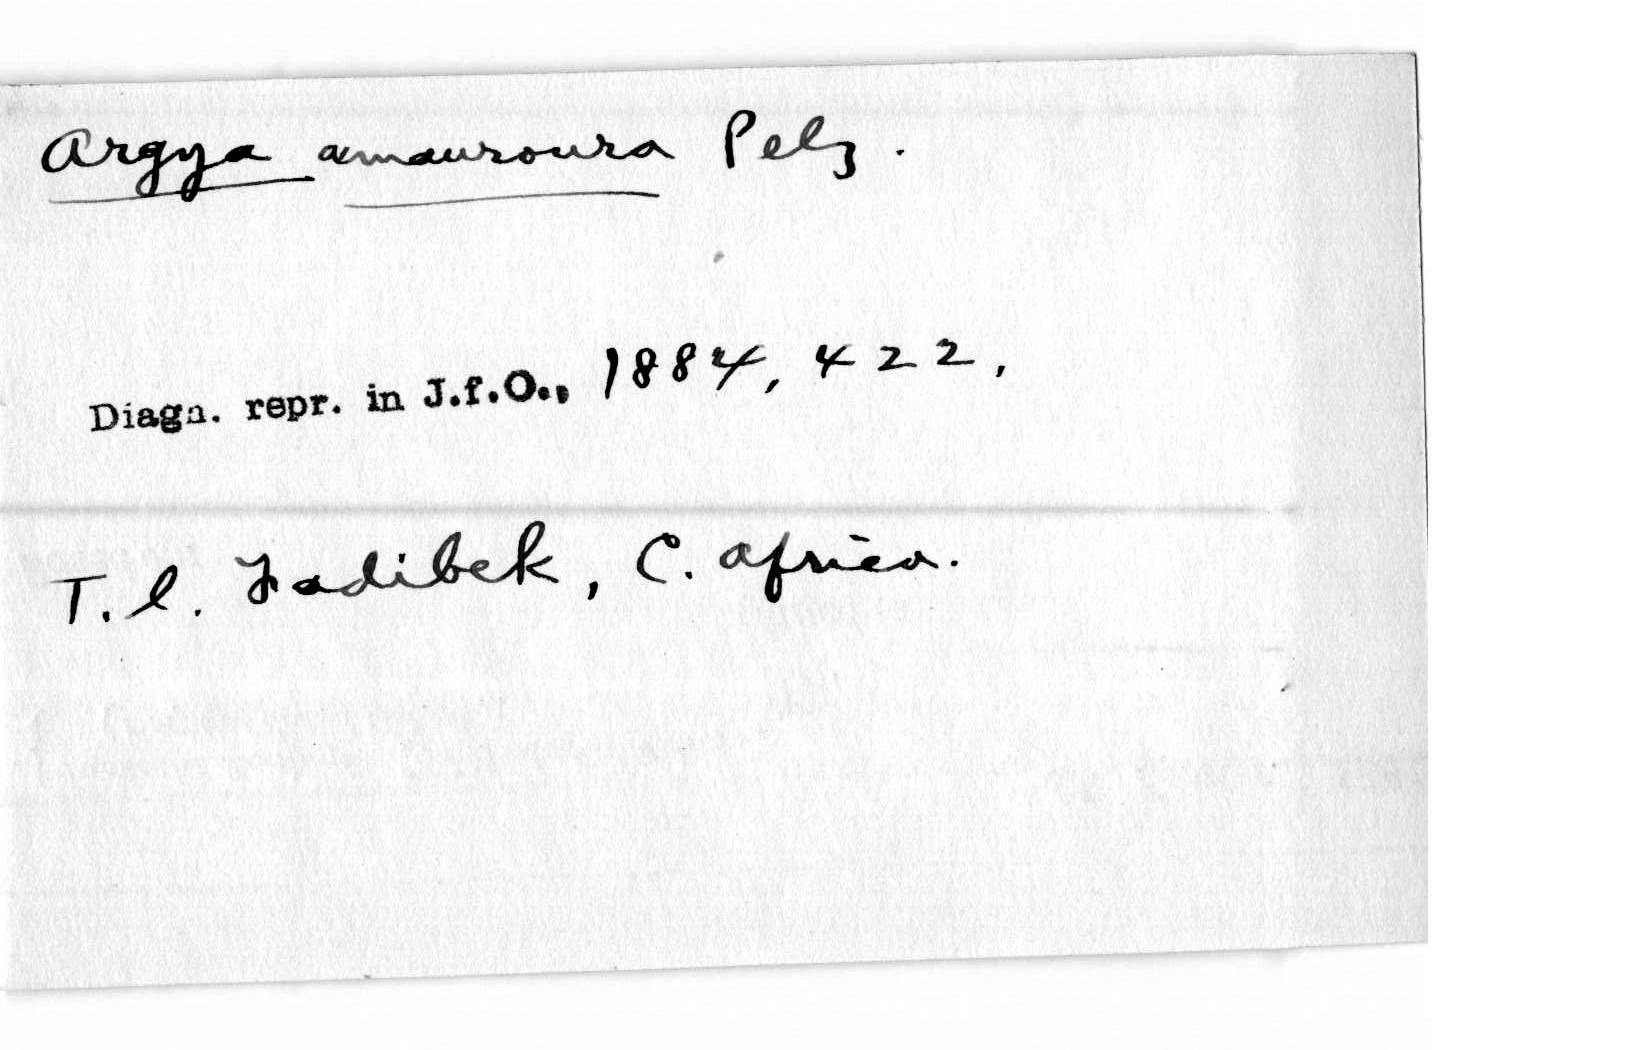 Argya amauroura Pelz.
Diagn. repr. in J.f.O., 1884, 422,
T. l. Fadibek, C. Africa.